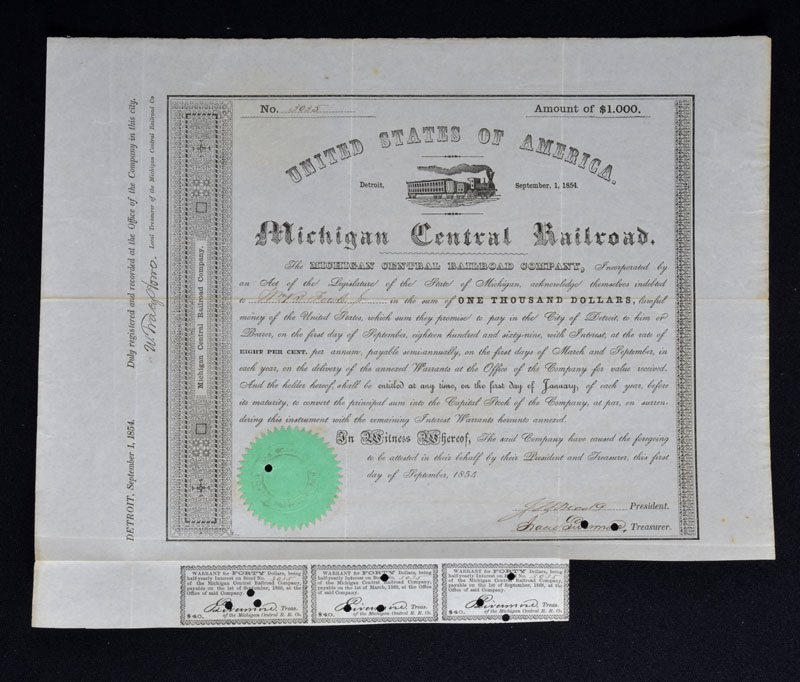 No. 3035
Amount of $1.000.
UNITED STATES OF AMERICA.
Detroit, September, 1, 1854.
Michigan Central Railroad.
The MICHIGAN CENTRAL RAILROAD COMPANY, Incorporated by
an Act of the Legislature of the State of Michigan, acknowledge themselves indebted
to in the sum of ONE THOUSAND DOLLARS, lawful
money of the United States, which sum they promise to pay in the City of Detroit, to him or
Bearer, on the first day of September, eighteen hundred and sixty-nine, with Interest, at the rate of
EIGHT PER CENT. per annum, payable semi-annually, on the first days of March and September, in
each year, on the delivery of the annexed Warrants at the Office of the Company for value received.
And the holder hereof, shall be entitled at any time, on the first day of January, of each year, before
its maturity, to convert the principal sum into the Capital Stock of the Company, at par, on surren-
dering this instrument with the remaining Interest Warrants hereunto annexed.
In Witness Whereof, The said Company have caused the foregoing
to be attested in their behalf by their President and Treasurer, this first
day of September, 1854
President.
Isaac Livermore, Treasurer.
Michigan Central Railroad Company.
DETROIT, September 1, 1854. Duly registered and recorded at the Office of the Company in this city,
Local Treasurer of the Michigan Central Railroad Co
WARRANT for FORTY Dollars, being
half-yearly Interest on Bond No. 3035
of the Michigan Central Railroad Company,
payable on the 1st of September, 1869, at the
Office of said Company.
Livermore, Treas.
$40. of the Michigan Central R. R. Co.
WARRANT for FORTY Dollars, being
half-yearly Interest on Bond No. 3035
of the Michigan Central Railroad Company,
payable on the 1st of March, 1869, at the Office
of said Company.
Livermore, Treas.
$40. of the Michigan Central R. R. Co.
WARRANT for FORTY Dollars, being
half-yearly Interest on Bond No. 3035
of the Michigan Central Railroad Company,
payable on the 1st of September, at the
Office of said Company.
Livermore, Treas.
$40. of the Michigan Central R. R. Co.